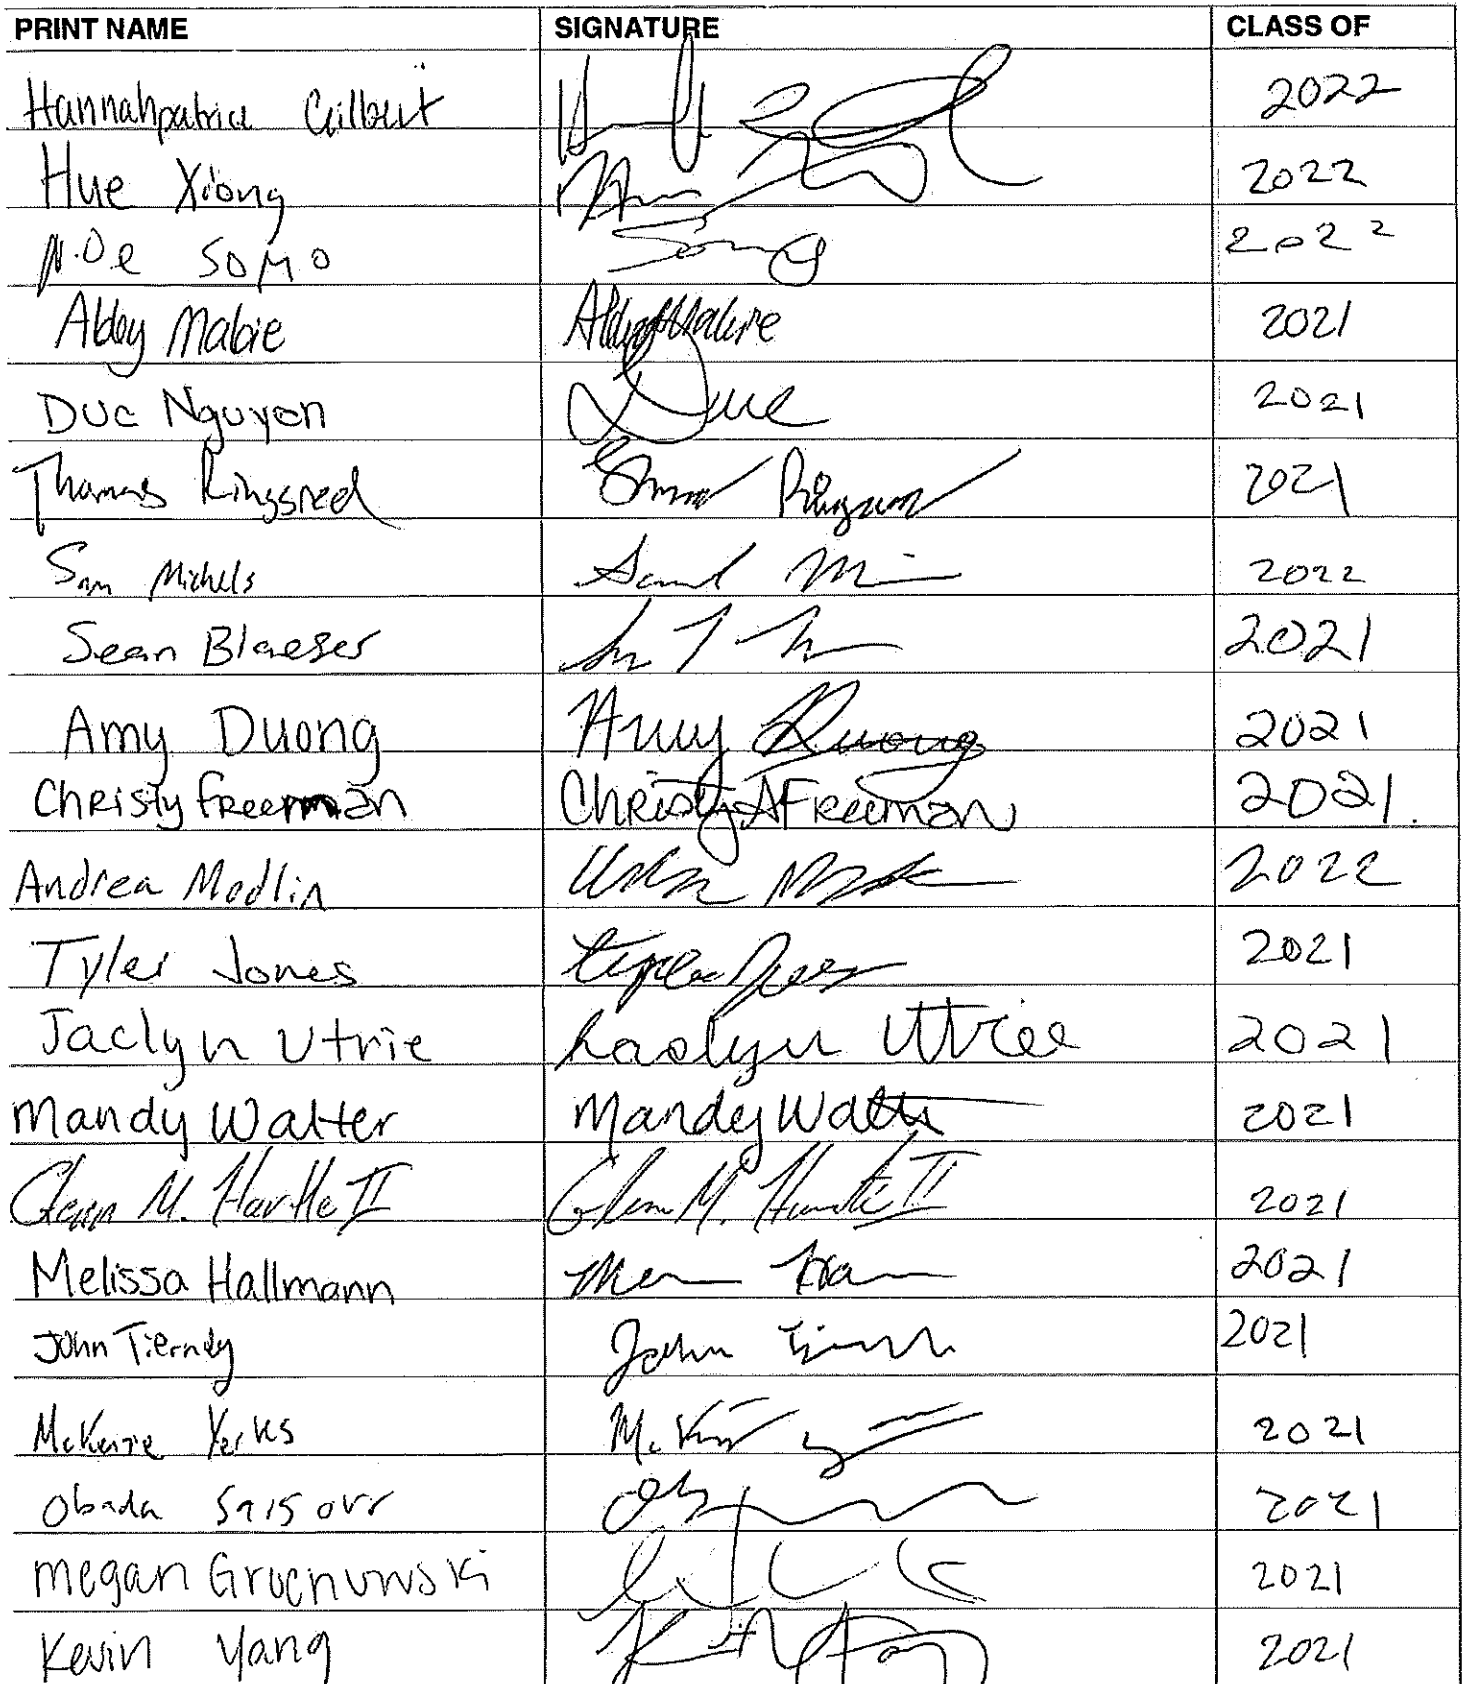 PRINT NAME SIGNATURE CLASS OF
Hannahpatrice Gilbert 2022
Hue Xiong 2022
SOMO 2022
Abby Mabie Abby Mabie 2021
Duc Nguyen Duc 2021
Thomas Ringsred 2021
Sam Michels 2022
Sean Blaeser 2021
Amy Duong Amy Duong 2021
Christy Freeman Christy A Freeman 2021.
Andrea Modlin 2022
Tyler Jones Tyler Jones 2021
Jaclyn Utrie Jaclyn Utrie 2021
Mandy Walter Mandy Walter 2021
Glenn M. Hartle II Glenn M. Hartle II 2021
Melissa Hallmann 2021
John Tierney John 2021
McKenzie Yerks 2021
Obada 2021
Megan 2021
Kevin Yang 2021